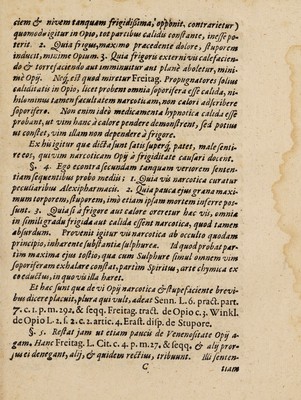 ciem & nivam tanquam frigidißima, opponit, contrarietur)
quomodo igitur in Opio, tot partibus calidu constante, inesse po-
terit. 2. Quia frigus, maximo præcedente dolore, stuporem
inducit, minime Opium. 3. Quia frigoris externi vis calefacien-
do & torrefaciendo aut imminuitur aut planè aboletur, mini-
mè Opij. Neq; est quod miretur Freitag. Propugnatores solius
caliditatis in Opio, licet probent omnia soporifera esse calida, ni-
hilominus tamen facultatem narcoticam, non calori adscribere
soporifero. Non enim ideò medicamenta hypnotica calida esse
probant, ut vim hanc à calore pendere demonstrent, sed potius
ut constet, vim illam non dependere à frigore.
Ex hu igitur quæ dicta sunt satis superq́; patet, malè senti-
re eos, qui vim narcoticam Opij à frigiditate causari docent.
§. 4. Ego econtra secundam tanquam veriorem senten-
tiam sequentibus probo mediis: 1. Quia vis narcotica curatur
peculiaribus Alexipharmacis. 2. Quia pauca ejus grana maxi-
mum torporem, stuporem, imò etiam ipsam mortem inferre pos-
sunt. 3. Quia si à frigore aut calore oreretur hæc vis, omnia
in simili gradu frigida aut calida essent narcotica, quod tamen
absurdum. Provenit igitur vis narcotica ab occulto quodam
principio, inhærente substantiæ sulphureæ. Id quod probat par-
tim maxima ejus tostio, qua cum Sulphure simul omnem vim
soporiferam exhalare constat, partim Spiritus, arte chymica ex
eo eductus, in quo vis illa hæret.
Et hæc sunt quæ de vi Opij narcotica & stupefaciente brevi-
bus dicere placuit, plura qui vult, adeat Senn. L. 6. pract. part.
7. c. 1. p. m. 292, & seqq. Freitag. tract. de Opio c. 3. Winkl.
de Opio L. 2. s. 2. c. 2. artic. 4. Erast. disp. de Stupore.
§. 5. Restat jam ut etiam paucis de Venenositate Opij a-
gam, Hanc Freitag. L. Cit. c. 4. p. m. 27, & seqq. & alij pror-
sus ei denegant, alij, & quidem rectius, tribuunt. Illi senten-
C
tiam